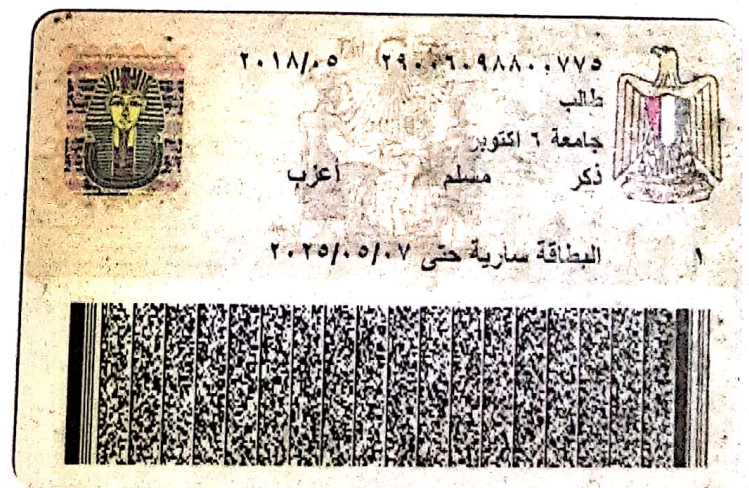 ٢٩٠٠٦٠٩٨٨٠٠٧٧٥ ٢٠١٨/٠٥
طالب
جامعة ٦ اكتوبر
ذكر مسلم أعزب
١ البطاقة سارية حتى ٢٠٢٥/٠٥/٠٧